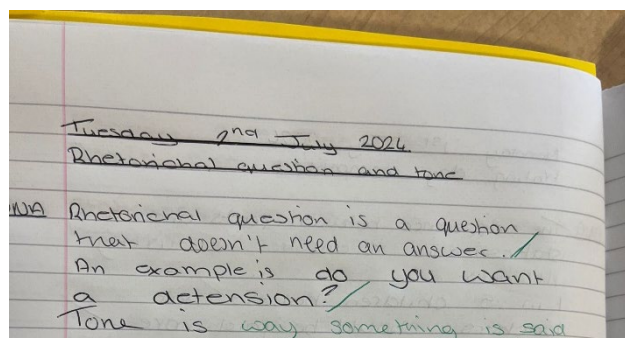 Tuesday 2nd July 2024
Rhetorichal question and tone
Rhetorichal question is a question
that doesn't need an answer.
An example is do you want
a detension?
Tone is way something is said